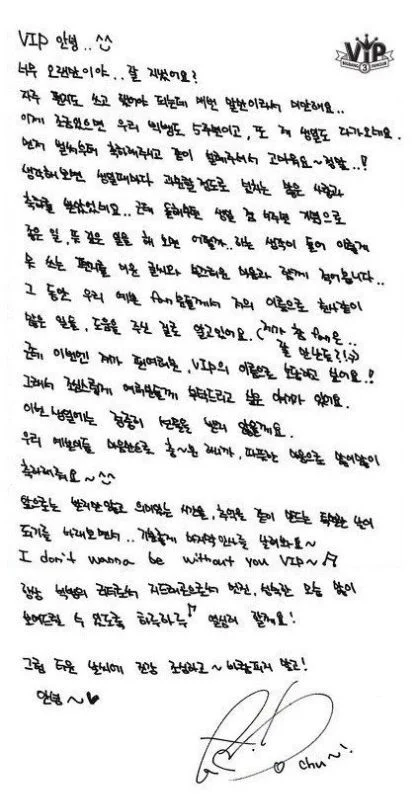 VIP 안녕..^^
VIP
BIGBANG 3
너무 오랜만이야.. 잘 지냈어요?
자주 편지도 쓰고 했어야 되는데 매번 말뿐이라서 미안해요..
이제 조금있으면 우리 빅뱅도 5주년이고, 또 제 생일도 다가오네요.
먼저 벌써부터 축하해주시고 같이 설레주셔서 고마워요~정말..!
생각해보면 생일때마다 과분할정도로 넘치는 많은 사랑과
축하를 받았었네요.. 근데 올해부턴 생일 겸 5주년 기념으로
좋은 일, 뜻 깊은 일을 해 보면 어떨까..하는 생각이 들어 이렇게
못 쓰는 편지를 미운 글씨와 부끄러운 마음과 함께 적어봅니다..
그 동안 우리 예쁜 fan분들께서 저의 이름으로 한사람이
많은 일을, 도움을 주신 걸로 알고있어요. (제가 참 fan은..
잘 만난듯?!:))
근데 이번엔 제가 여러분, VIP의 이름으로 선물하고 싶어요.!
그래서 조심스럽게 여러분들께 부탁드리고 싶은 이야기가 있어요.
이번 생일에는 팬들의 선물을 받지 않을게요.
우리 예쁜이들 마음만으로 충~분 하니까, 따뜻한 마음으로 많이많이
축하해줘요~^^
앞으로는 받기만 않고 의미있는 시간을, 추억을 같이 만드는 특별한 날이
되기를 바래보면서.. 기분좋게 마지막인사를 날려봐요~
I don't wanna be without you VIP~♪
항상 빅뱅의 리더로서 지드래곤으로서 멋진, 성숙한 모습 많이
보여드릴 수 있도록 하루하루♪ 열심히 할게요!
그럼 더운 날씨에 건강 조심하고~ 바람피지 말고!
안녕~♥
G.D
♡ chu~!